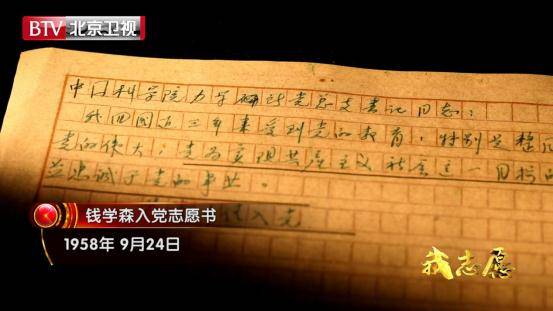 BTV 北京卫视
中国科学院力学研究所党总支书记同志：
我回国近三年来受到党的教育，特别是整风
党的伟大；党为实现共产主义社会这一目标而
并忠诚于党的事业。
入党
钱学森入党志愿书
1958年 9月24日
我志愿